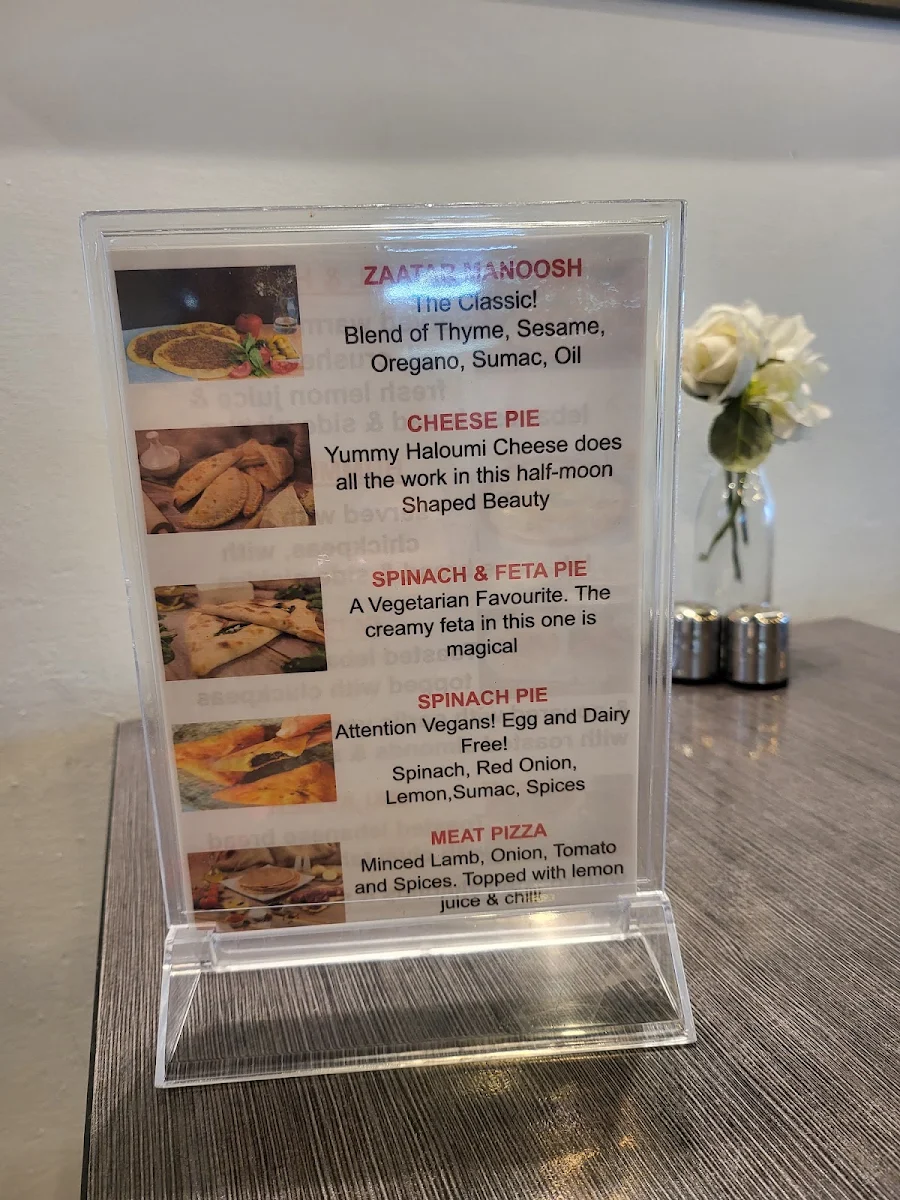 ZAATAR MANOOSH
The Classic!
Blend of Thyme, Sesame,
Oregano, Sumac, Oil
CHEESE PIE
Yummy Haloumi Cheese does
all the work in this half-moon
Shaped Beauty
SPINACH & FETA PIE
A Vegetarian Favourite. The
creamy feta in this one is
magical
SPINACH PIE
Attention Vegans! Egg and Dairy
Free!
Spinach, Red Onion,
Lemon,Sumac, Spices
MEAT PIZZA
Minced Lamb, Onion, Tomato
and Spices. Topped with lemon
juice & chilli